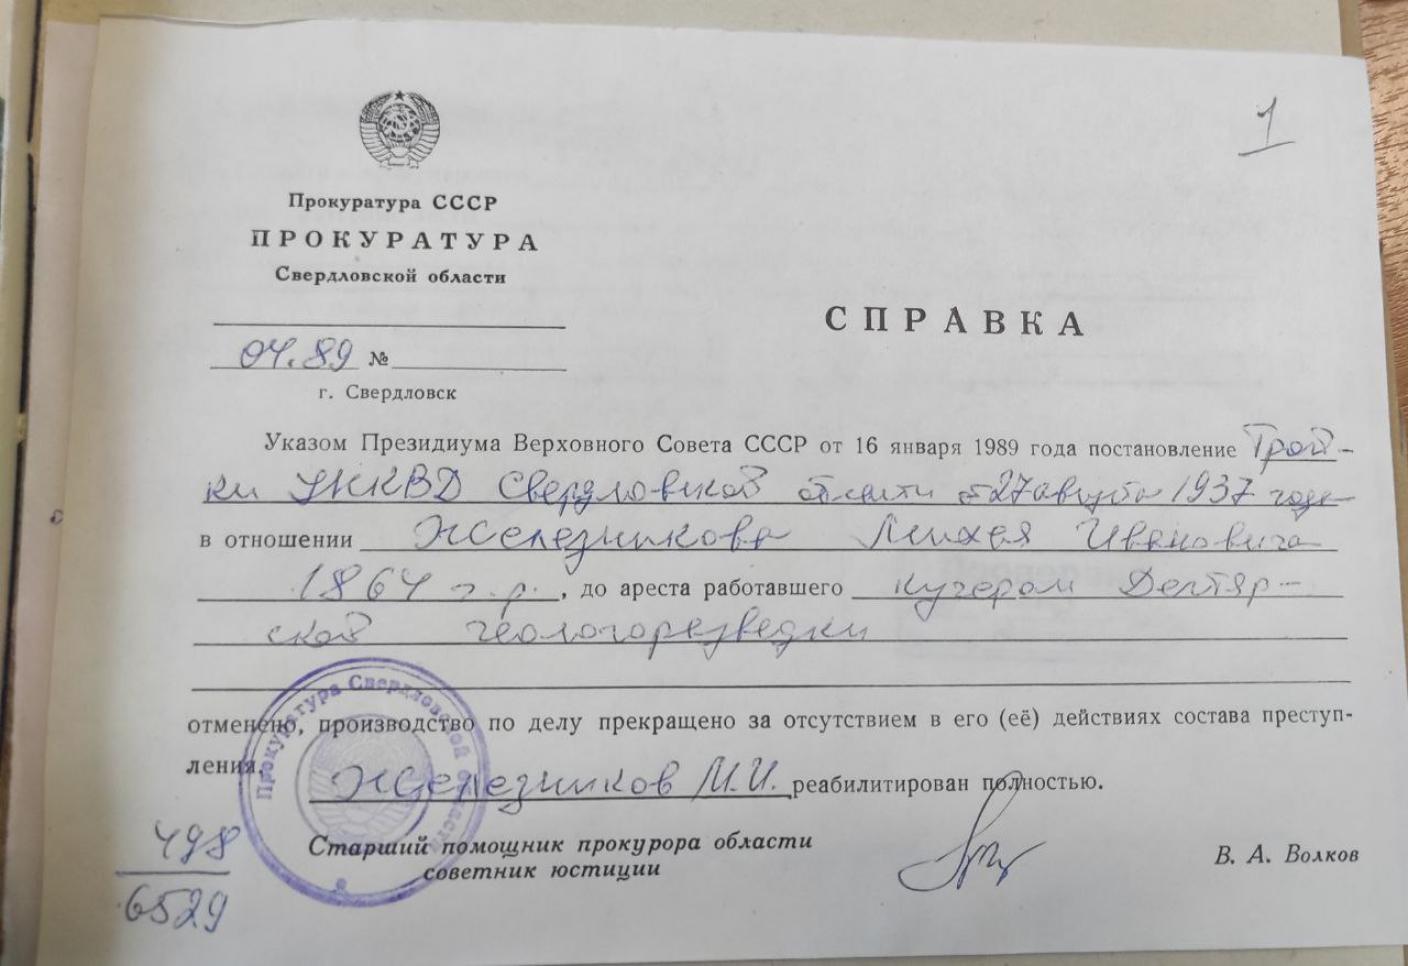 1
Прокуратура СССР
ПРОКУРАТУРА
Свердловской области
04.89 №
г. Свердловск
СПРАВКА
Указом Президиума Верховного Совета СССР от 16 января 1989 года постановление Трой-
ки УНКВД Свердловской области от 27 августа 1937 года
в отношении Железникова Михея Ивановича
1864 г.р., до ареста работавшего кучером Дегтяр-
ской геологоразведки
отменено, производство по делу прекращено за отсутствием в его (её) действиях состава преступ-
ления. Железников М.И. реабилитирован полностью.
Старший помощник прокурора области
советник юстиции
В. А. Волков
498
6529
Прокуратура Свердловской области